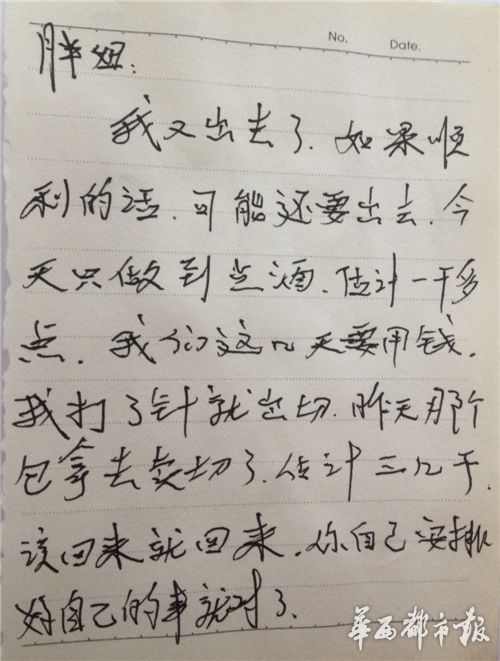 No. Date.
胖妞：
我又出去了．如果顺
利的话．可能还要出去．今
天只做到点酒．估计一千多
点．我们这几天要用钱．
我打了针就出切．昨天那个
包拿去卖切了．估计三几千．
该回来就回来．你自己安排
好自己的事就对了．
华西都市报